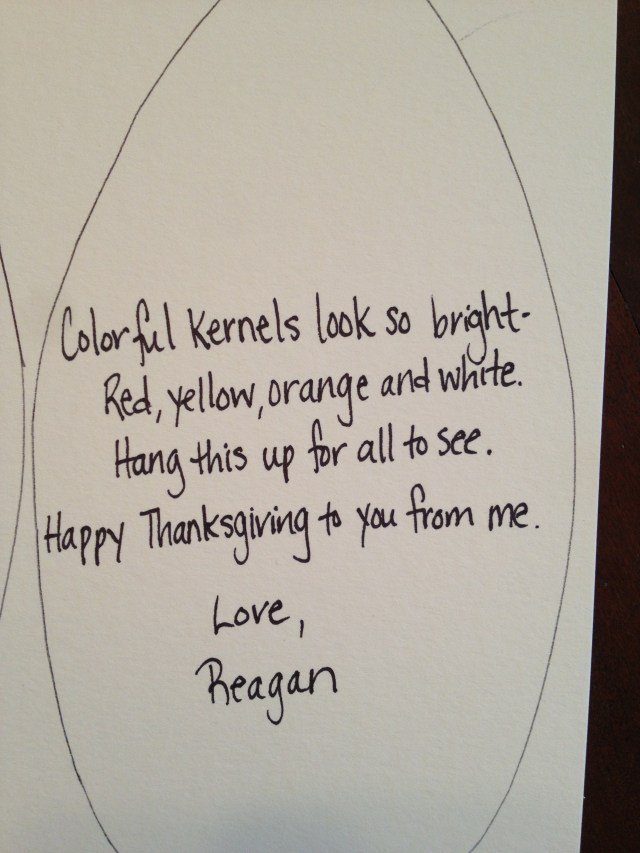 Colorful Kernels look so bright-
Red, yellow, orange and white.
Hang this up for all to see.
Happy Thanksgiving to you from me.
Love,
Reagan